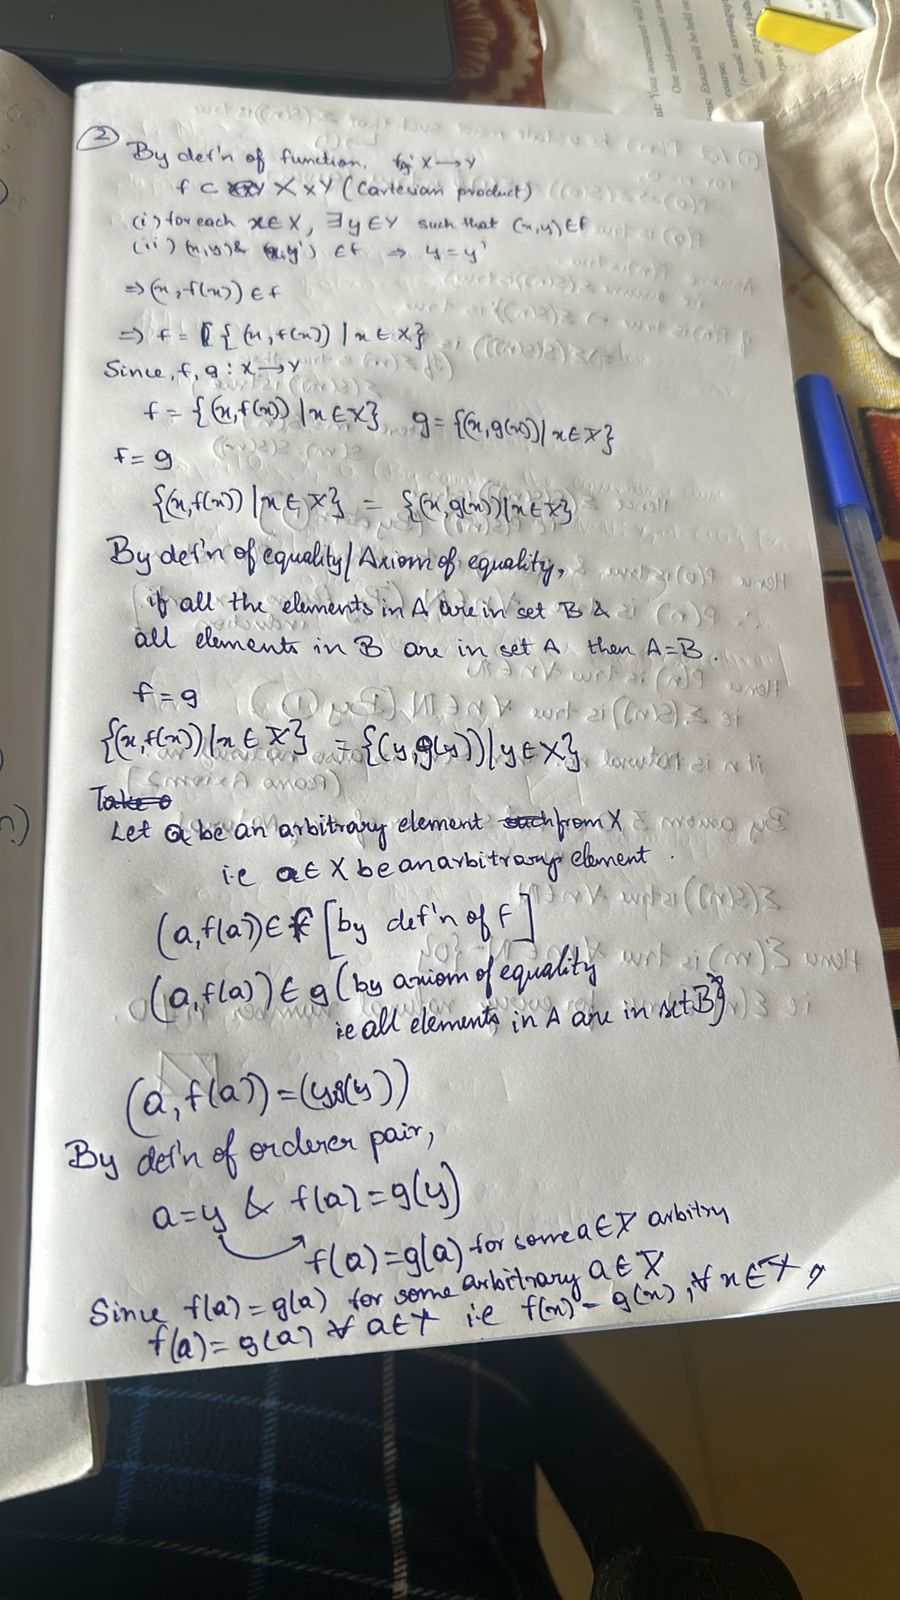 ②
By def'n of function. f,g: X→Y
f ⊂ X×Y (Cartesian product)
(i) for each x∈X, ∃y∈Y such that (x,y)∈f
(ii) (x,y) & (x,y') ∈f ⇒ y=y'
⇒(x,f(x))∈f
⇒ f = {(x,f(x)) | x∈X}
Since, f,g : X→Y
f = {(x,f(x)) | x∈X} g={(x,g(x)) | x∈X}
f=g
{(x,f(x)) | x∈X} = {(x,g(x)) | x∈X}
By def'n of equality/Axiom of equality,
if all the elements in A are in set B &
all elements in B are in set A then A=B.
f=g
{(x,f(x)) | x∈X} = {(y,g(y)) | y∈X}
Take
Let a be an arbitrary element such from X
i.e a∈X be an arbitrary element.
(a,f(a))∈f [by def'n of f]
(a,f(a))∈g (by axiom of equality
ie all elements in A are in set B)
(a,f(a))=(y,g(y))
By def'n of orderer pair,
a=y & f(a)=g(y)
f(a)=g(a) for some a∈X arbitry
Since f(a)=g(a) for some arbitrary a∈X
f(a)=g(a) ∀ a∈X i.e f(x)=g(x), ∀ x∈X